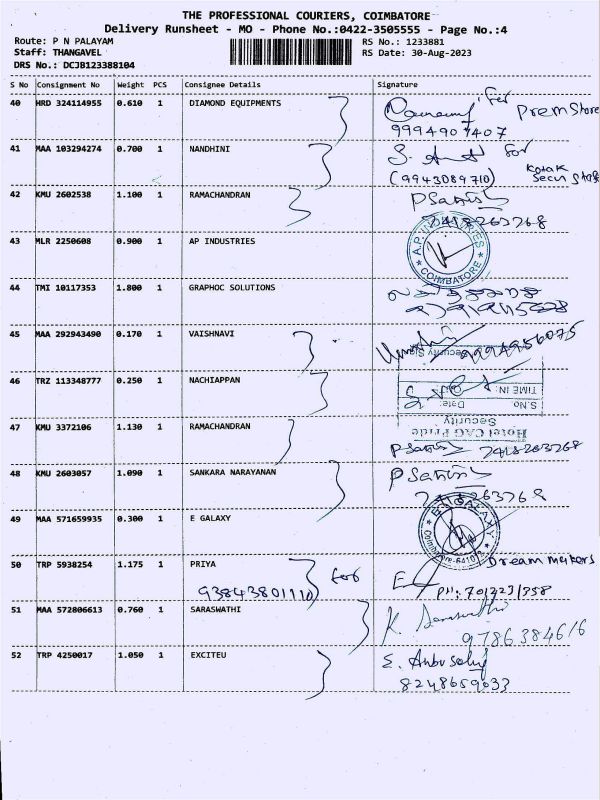 THE PROFESSIONAL COURIERS, COIMBATORE
Delivery Runsheet - MO - Phone No.:0422-3505555 - Page No.:4
Route: P N PALAYAM
Staff: THANGAVEL
DRS No.: DCJB123388104
RS No.: 1233881
RS Date: 30-Aug-2023
S No Consignment No Weight PCS Consignee Details Signature
40 HRD 324114955 0.610 1 DIAMOND EQUIPMENTS for Prem Store
9994907407
41 MAA 103294274 0.700 1 NANDHINI for
(9943089710) Kotak
42 KMU 2602538 1.100 1 RAMACHANDRAN
7418263768
43 MLR 2250608 0.900 1 AP INDUSTRIES
A.P. INDUSTRIES
COIMBATORE
44 TMI 10117353 1.800 1 GRAPHOC SOLUTIONS
45 MAA 292943490 0.170 1 VAISHNAVI
46 TRZ 113348777 0.250 1 NACHIAPPAN
TIME IN:
S.No Date:
Security
Hotel CAG Pride
47 KMU 3372106 1.130 1 RAMACHANDRAN
7418263768
48 KMU 2603057 1.090 1 SANKARA NARAYANAN
49 MAA 571659935 0.300 1 E GALAXY
GALAXY
50 TRP 5938254 1.175 1 PRIYA for Dream makers
9384380111
51 MAA 572806613 0.760 1 SARASWATHI K
9786384616
52 TRP 4250017 1.050 1 EXCITEU
8248659033